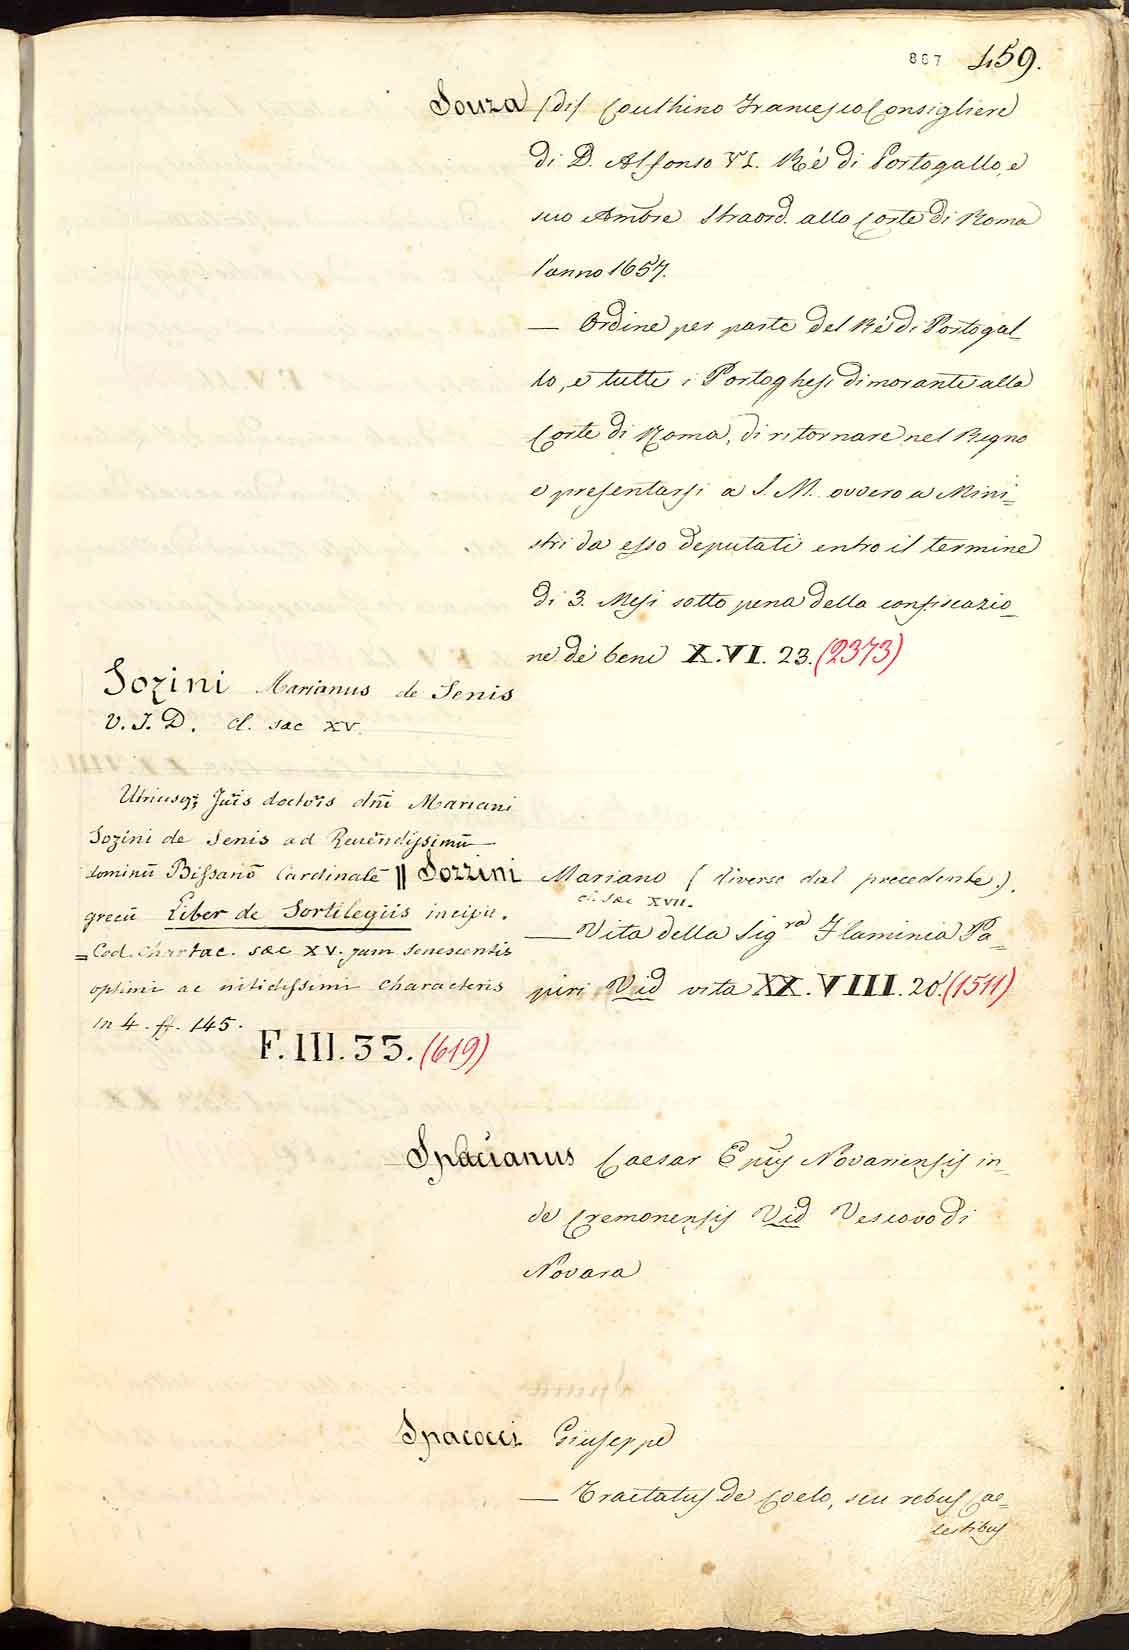 867 459.
Souza (di) Couthino Francesco Consigliere
di D. Alfonso VI. Ré di Portogallo, e
suo Ambre straord. alla Corte di Roma
l'anno 1657.
— Ordine per parte del Ré di Portogal-
lo, e tutti i Portoghesi dimoranti alla
Corte di Roma, di ritornare nel Regno
e presentarsi a S. M. ovvero a Mini=
stri da esso deputati entro il termine
di 3. Mesi sotto pena della confiscazio-
ne dé beni X.VI. 23. (2373)
Sozini Marianus de Senis
V. J. D. cl. sæc XV.
Utriusq; Juris doctoris dni Mariani
Sozini de Senis ad Reuerendissimū
dominū Bissanō Cardinalē
grecū Liber de Sortilegiis incipit.
= Cod. Chartac. sæc XV. jam senescentis
optimi ac nitidissimi characteris
in 4. ff. 145.
F. III. 33. (619)
|| Sozzini Mariano (diverso dal precedente).
cl. sæc XVII.
— Vita della Sigra Flaminia Pa=
piri Vid vita XX. VIII. 20. (1511)
Spacianus Caesar Epus Novariensis in-
de Cremonensis Vid Vescovo di
Novara
Spacocci Giuseppe
— Tractatus de Coelo, seu rebus Cae=
lestibus